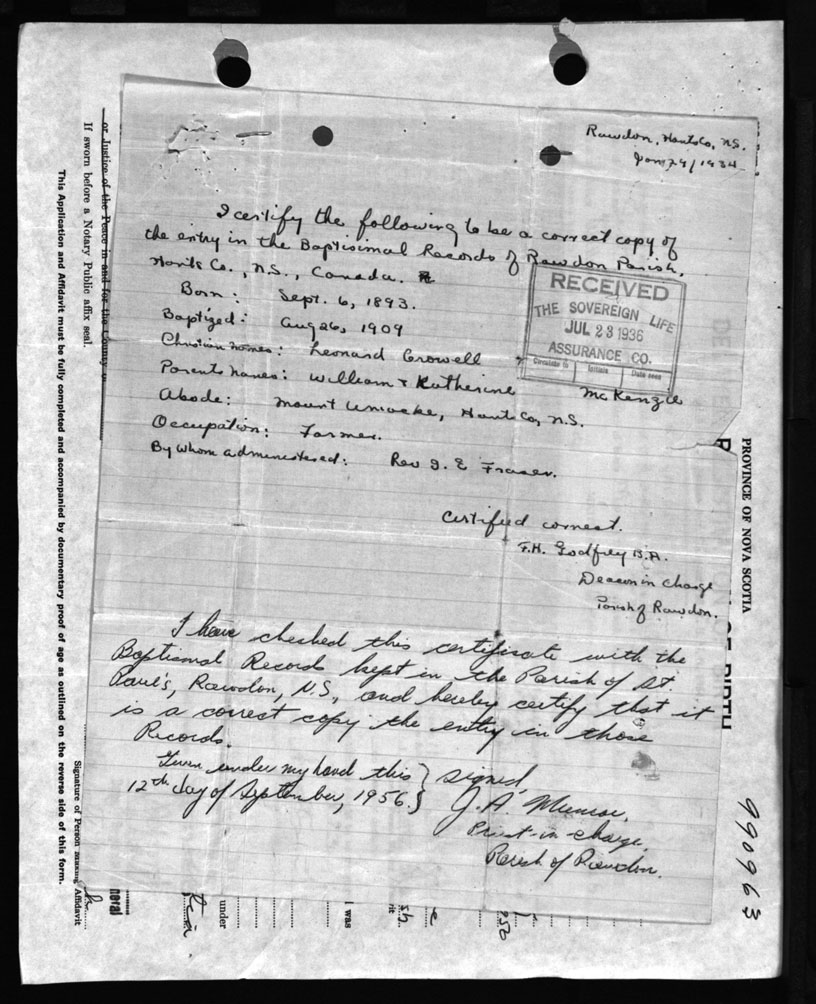 Rawdon, Hants Co, N.S.
Jan 29/1934
I certify the following to be a correct copy of
the entry in the Baptisimal Records of Rawdon Parish,
Hants Co., N.S., Canada.
Born: Sept. 6, 1893.
Baptized: Aug 26, 1909
Christian names: Leonard Crowell
Parents names: William & Katherine McKenzie
Abode: Mount Uniacke, Hants Co, N.S.
Occupation: Farmer.
By whom administered: Rev J. E Fraser.
RECEIVED
THE SOVEREIGN LIFE
JUL 23 1936
ASSURANCE CO.
Circulate to Initials Date seen
Certified correct.
F.H. Godfrey B.A.
Deacon in charge
Parish of Rawdon.
I have checked this certificate with the
Baptismal Records kept in the Parish of St.
Paul's, Rawdon, N.S., and hereby certify that it
is a correct copy the entry in those
Records.
Given under my hand this } signed,
12th day of September, 1956. } J.A. Munroe,
Priest-in-charge,
Parish of Rawdon.
or Justice of the Peace in and for the County
If sworn before a Notary Public affix seal.
This Application and Affidavit must be fully completed and accompanied by documentary proof of age as outlined on the reverse side of this form.
Signature of Person making Affidavit
PROVINCE OF NOVA SCOTIA
OF BIRTH
990963
neral
under
I was